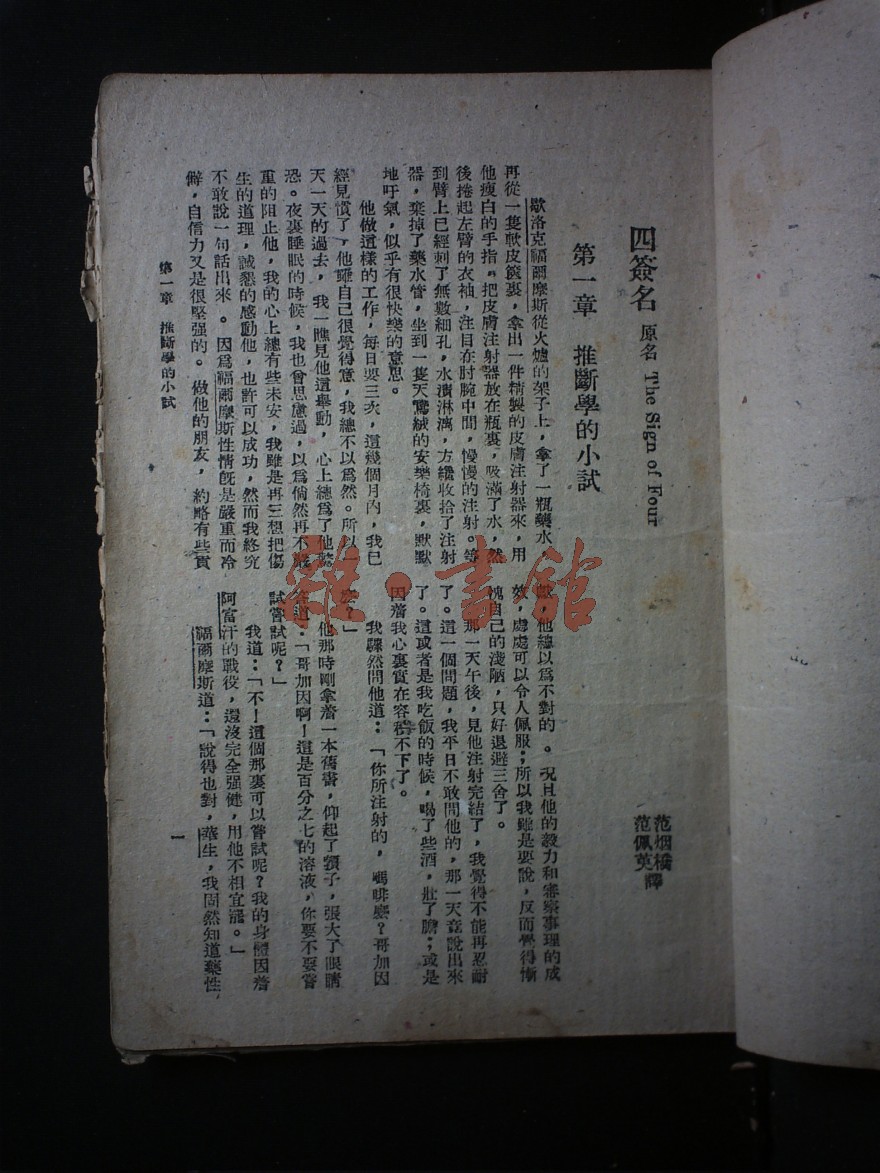 四簽名 原名 The Sign of Four
范烟橋
范佩英 譯
第一章 推斷學的小試
歇洛克福爾摩斯從火爐的架子上,拿了一瓶藥水,
再從一隻軟皮篋裏,拿出一件精製的皮膚注射器來,用
他瘦白的手指,把皮膚注射器放在瓶裏,吸滿了水,然
後捲起左臂的衣袖,注目在肘腕中間,慢慢的注射。等
到臂上已經刺了無數細孔,水漬淋漓,方纔收拾了注射
器,棄掉了藥水管,坐到一隻天鵞絨的安樂椅裏,默默
地吁氣,似乎有很快樂的意思。
他做這樣的工作,每日要三次,這幾個月內,我已
經見慣了,他雖自己很覺得意,我總不以爲然。所以一
天一天的過去,我一瞧見他這舉動,心上總爲了他
恐。夜裏睡眠的時候,我也曾思慮過,以爲倘然再不嚴
重的阻止他,我的心上總有些未安,我雖是再三想把傷
生的道理,誠懇的感動他,也許可以成功,然而我終究
不敢說一句話出來。因爲福爾摩斯性情旣是嚴重而冷
僻,自信力又是很堅强的。做他的朋友,約略有些貢
獻,他總以爲不對的。況且他的毅力和審察事理的成
效,處處可以令人佩服;所以我雖是要說,反而覺得慚
愧自己的淺陋,只好退避三舍了。
那一天午後,見他注射完結了,我覺得不能再忍耐
了。這一個問題,我平日不敢問他的,那一天竟說出來
了。這或者是我吃飯的時候,喝了些酒,壯了膽;或是
因着我心裏實在容不下了。
我驟然問他道:「你所注射的,嗎啡麽?哥加因
麽?」
他那時剛拿着一本舊書,仰起了頸子,張大了眼睛
答道:「哥加因啊!這是百分之七的溶液,你要不要嘗
試嘗試呢?」
我道:「不!這個那裏可以嘗試呢?我的身體因着
阿富汗的戰役,還沒完全强健,用他不相宜罷。」
福爾摩斯道:「說得也對,華生,我固然知道藥性
第一章 推斷學的小試
一
雜·書館